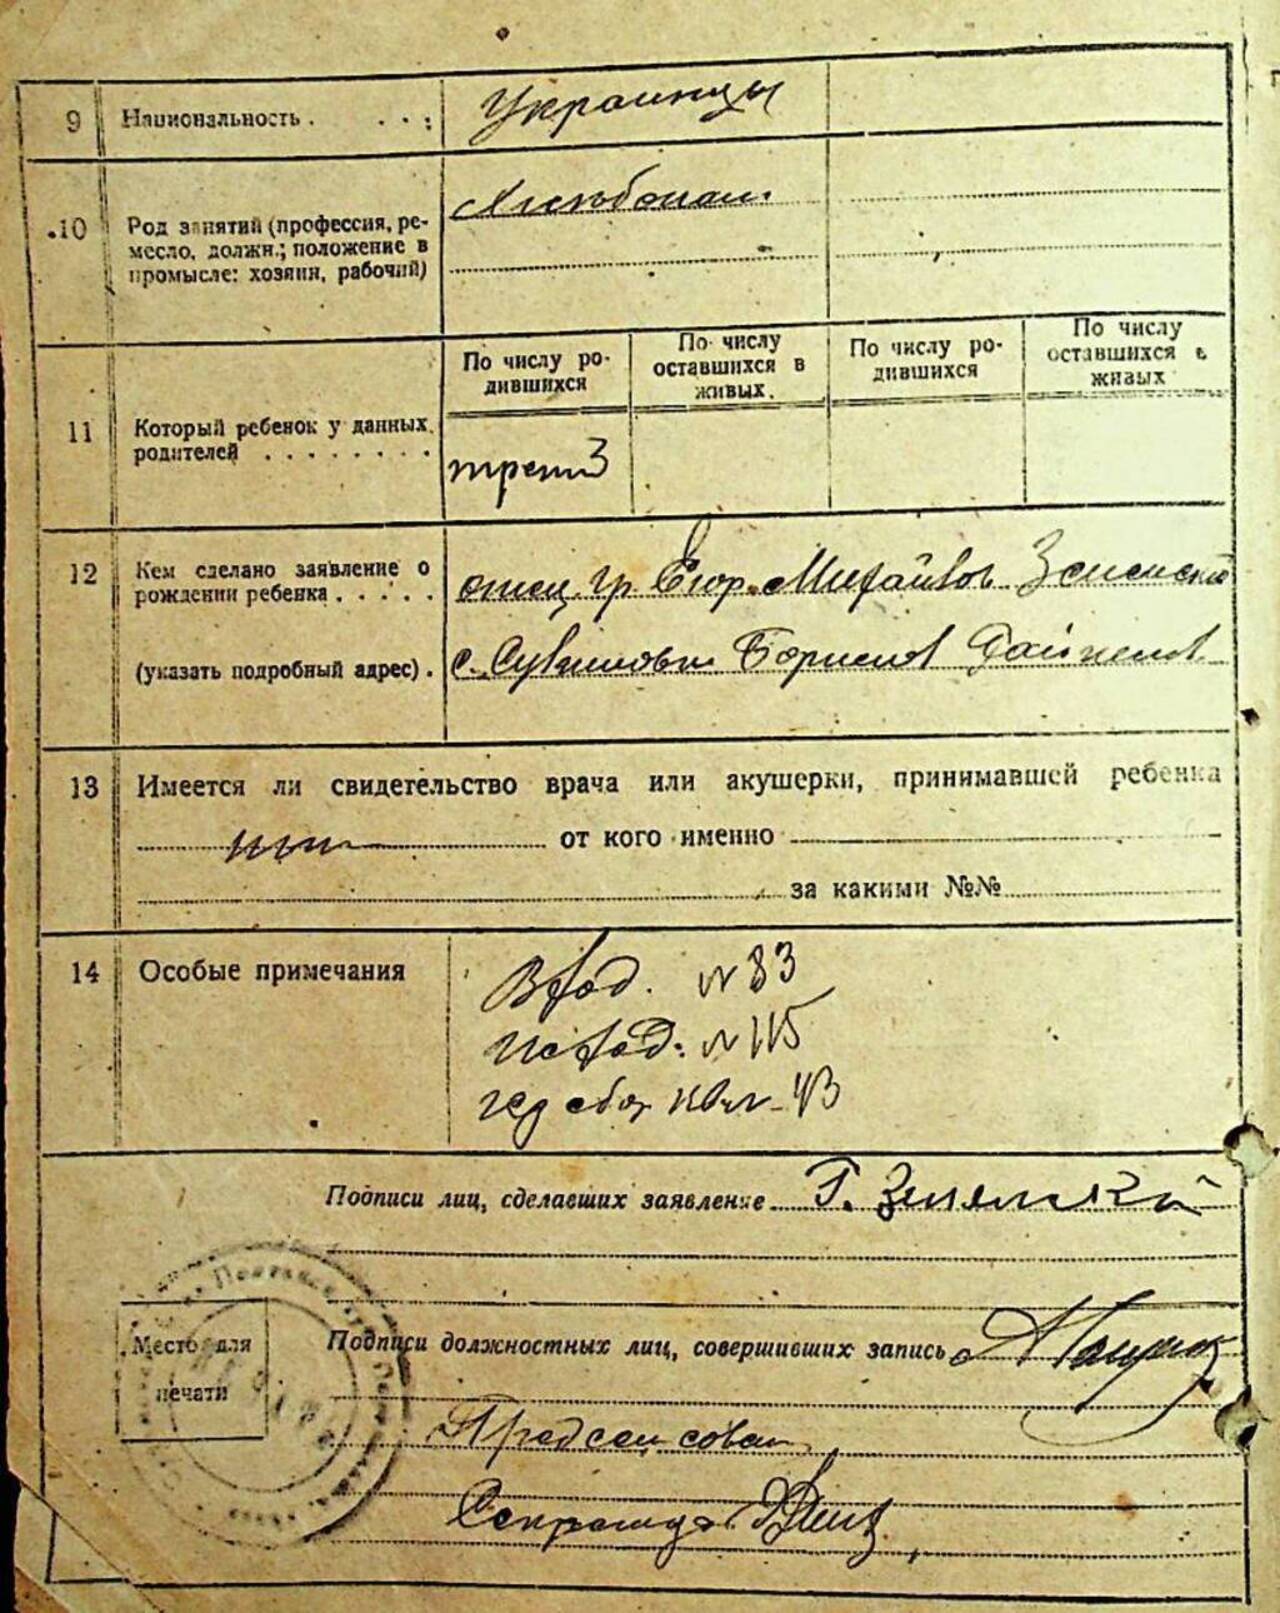 9 Национальность . . . . : Украинцы
10 Род занятий (профессия, ре-
месло, должн.; положение в
промысле: хозяин, рабочий)
По числу ро-
дившихся
По числу
оставшихся в
живых.
По числу ро-
дившихся
По числу
оставшихся в
живых
11 Который ребенок у данных
родителей . . . . . . . . трети 3
12 Кем сделано заявление о
рождении ребенка . . . . . отец гр. Егор Михайлов
(указать подробный адрес) . с. Борисов района
13 Имеется ли свидетельство врача или акушерки, принимавшей ребенка
нет от кого именно
за какими №№
14 Особые примечания
Вход. № 83
Исход. № 115
Подписи лиц, сделавших заявление Г.
Место для
печати
Подписи должностных лиц, совершивших запись
Предсель совета
Секретарь